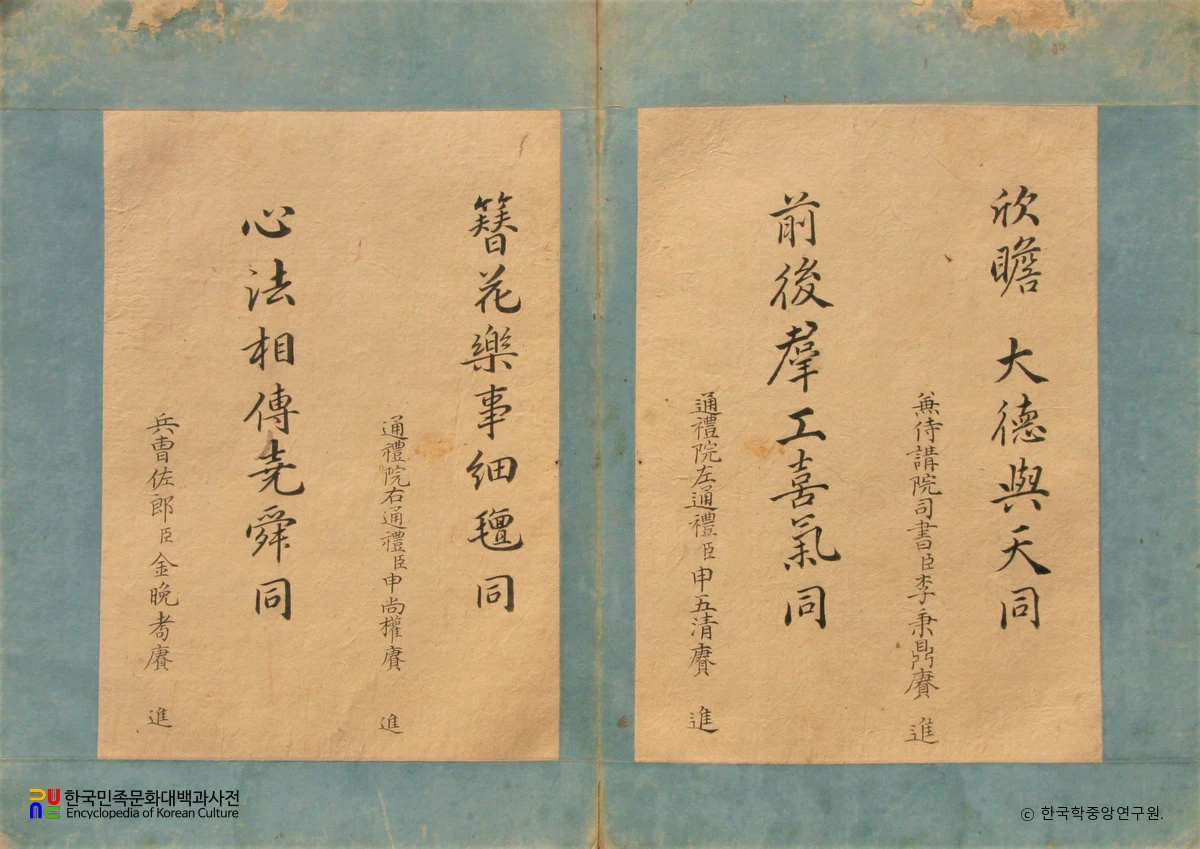 欣瞻 大德與天同
兼侍講院司書臣李秉鼎賡 進
前後羣工喜氣同
通禮院左通禮臣申五清賡 進
簪花樂事細氊同
通禮院右通禮臣申尚權賡 進
心法相傳堯舜同
兵曹佐郎臣金晩耈賡 進
한국민족문화대백과사전
Encyclopedia of Korean Culture
ⓒ 한국학중앙연구원.